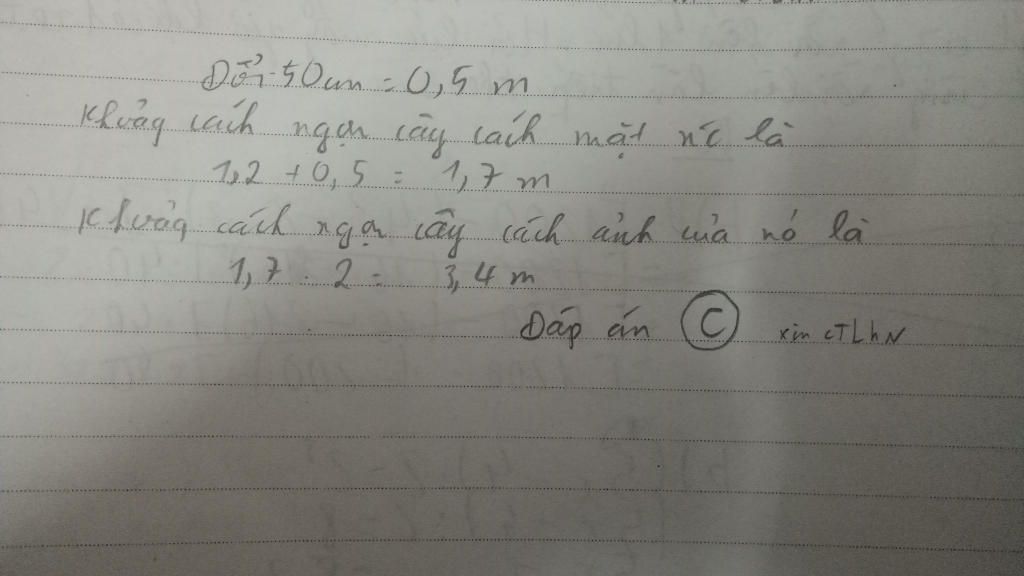 Đổi 50cm = 0,5 m
Khoảng cách ngọn cây cách mặt nc là
1,2 + 0,5 = 1,7 m
Khoảng cách ngọn cây cách ảnh của nó là
1,7 . 2 = 3,4 m
Đáp án C xin cTLhN